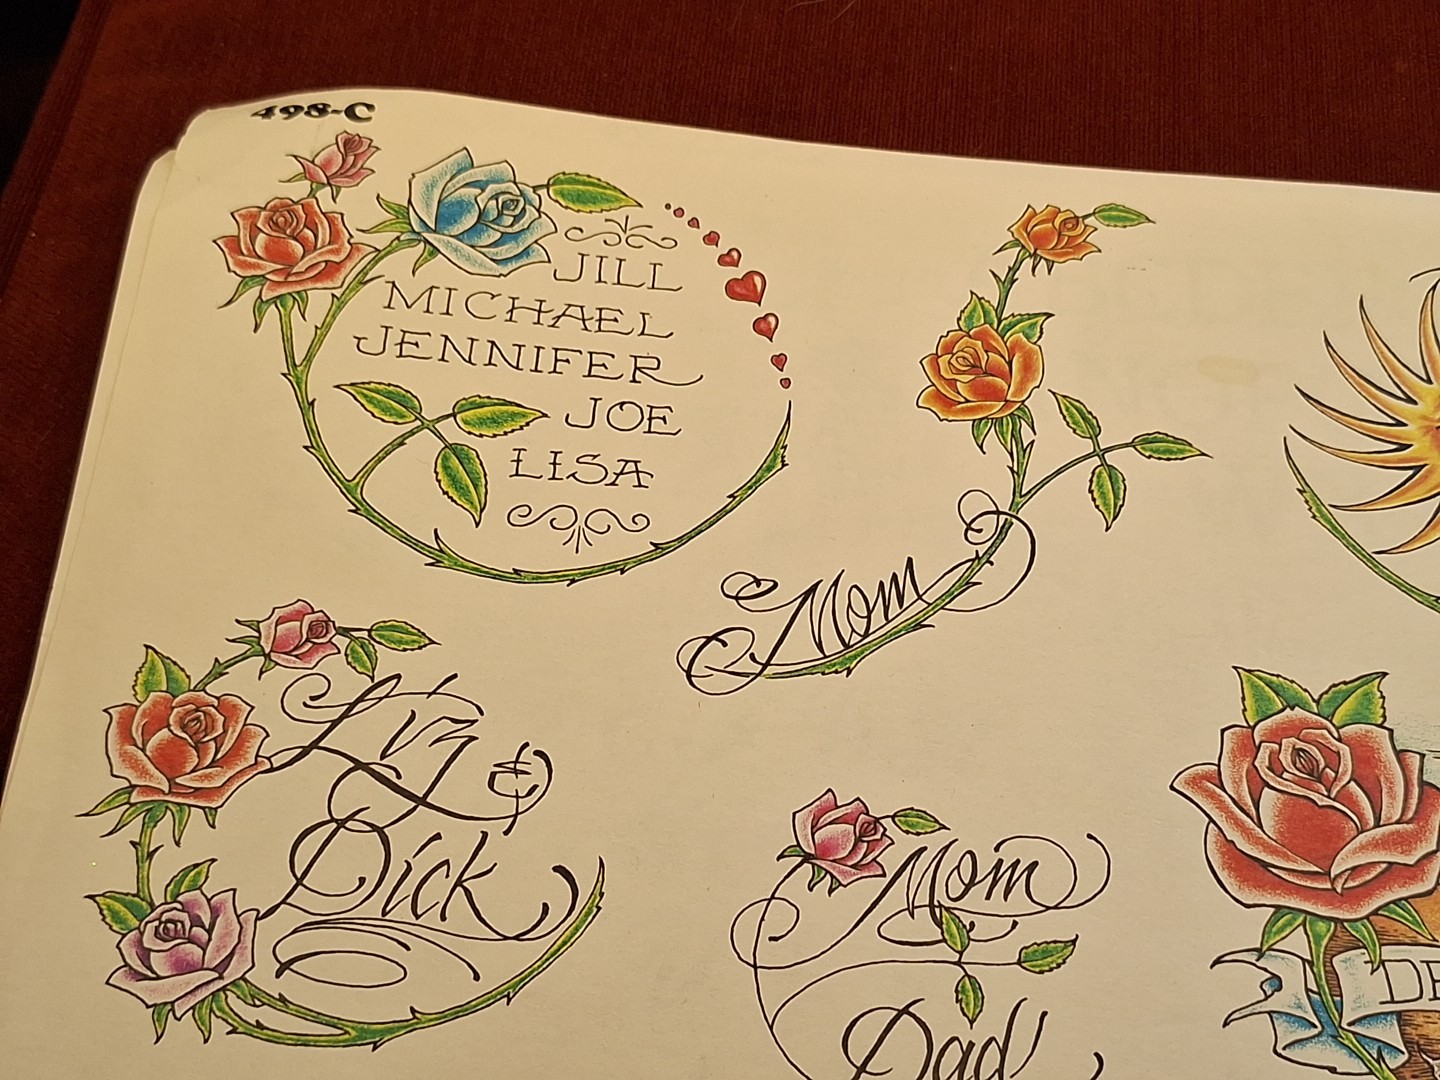 498-C
JILL
MICHAEL
JENNIFER
JOE
LISA
Mom
Liz &
Dick
Mom
Dad